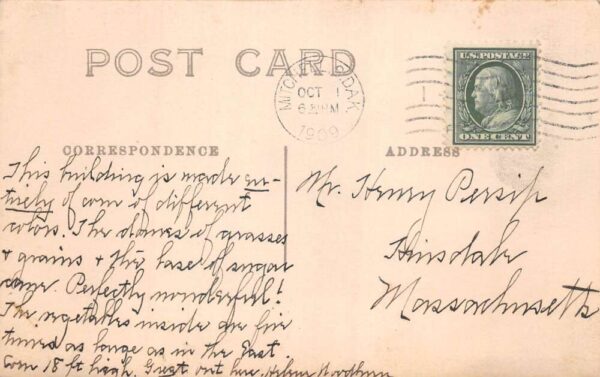 POST CARD
MITCHELL S. DAK.
OCT 1
6 PM
1909
1
U.S. POSTAGE
ONE CENT
CORRESPONDENCE
ADDRESS
This building is made en-
tirely of corn of different
colors. The domes of grasses
& grains & the base of sugar
cane. Perfectly wonderful!
The vegetables inside are five
times as large as in the East
Corn 18 ft high. Great out here.
Mr. Henry Persip
Hinsdale
Massachusetts